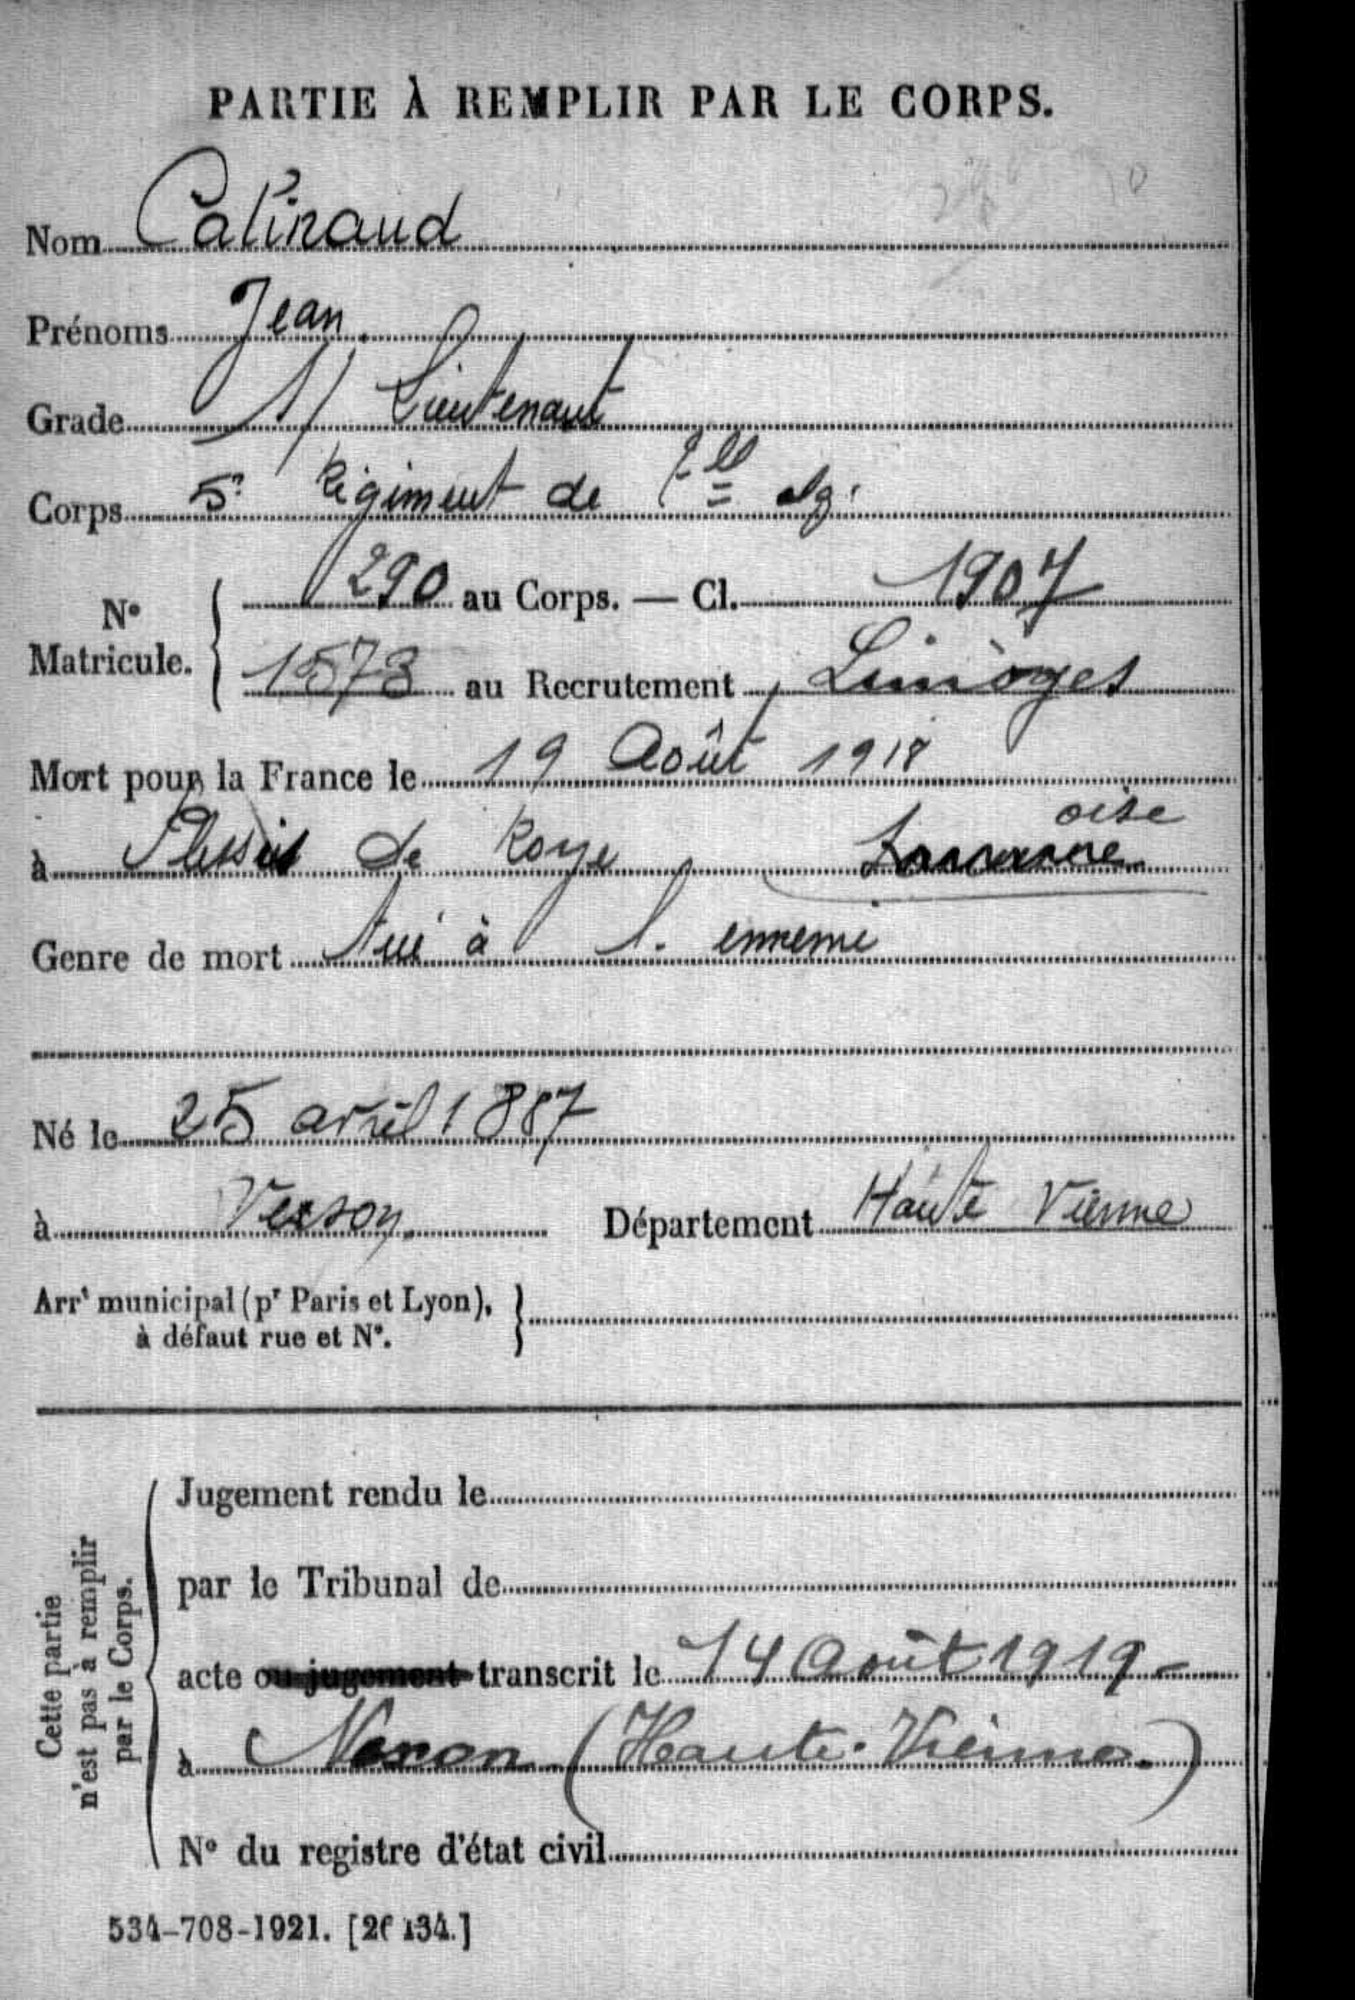 PARTIE À REMPLIR PAR LE CORPS.
Nom Catinaud
Prénoms Jean
Grade S/ Lieutenant
Corps 5e Régiment de Tlls alg.
No Matricule. 290 au Corps. — Cl. 1907
1573 au Recrutement Limoges
Mort pour la France le 19 Août 1918
oise
à Plessis de Roye
Genre de mort tué à l. ennemi
Né le 25 avril 1887
à Département Haute Vienne
Arrt municipal (pr Paris et Lyon),
à défaut rue et No.
Cette partie
n'est pas à remplir
par le Corps.
Jugement rendu le
par le Tribunal de
acte ou jugement transcrit le 14 Août 1919 -
à Nexon (Haute-Vienne.)
No du registre d'état civil
534-708-1921. [26134.]